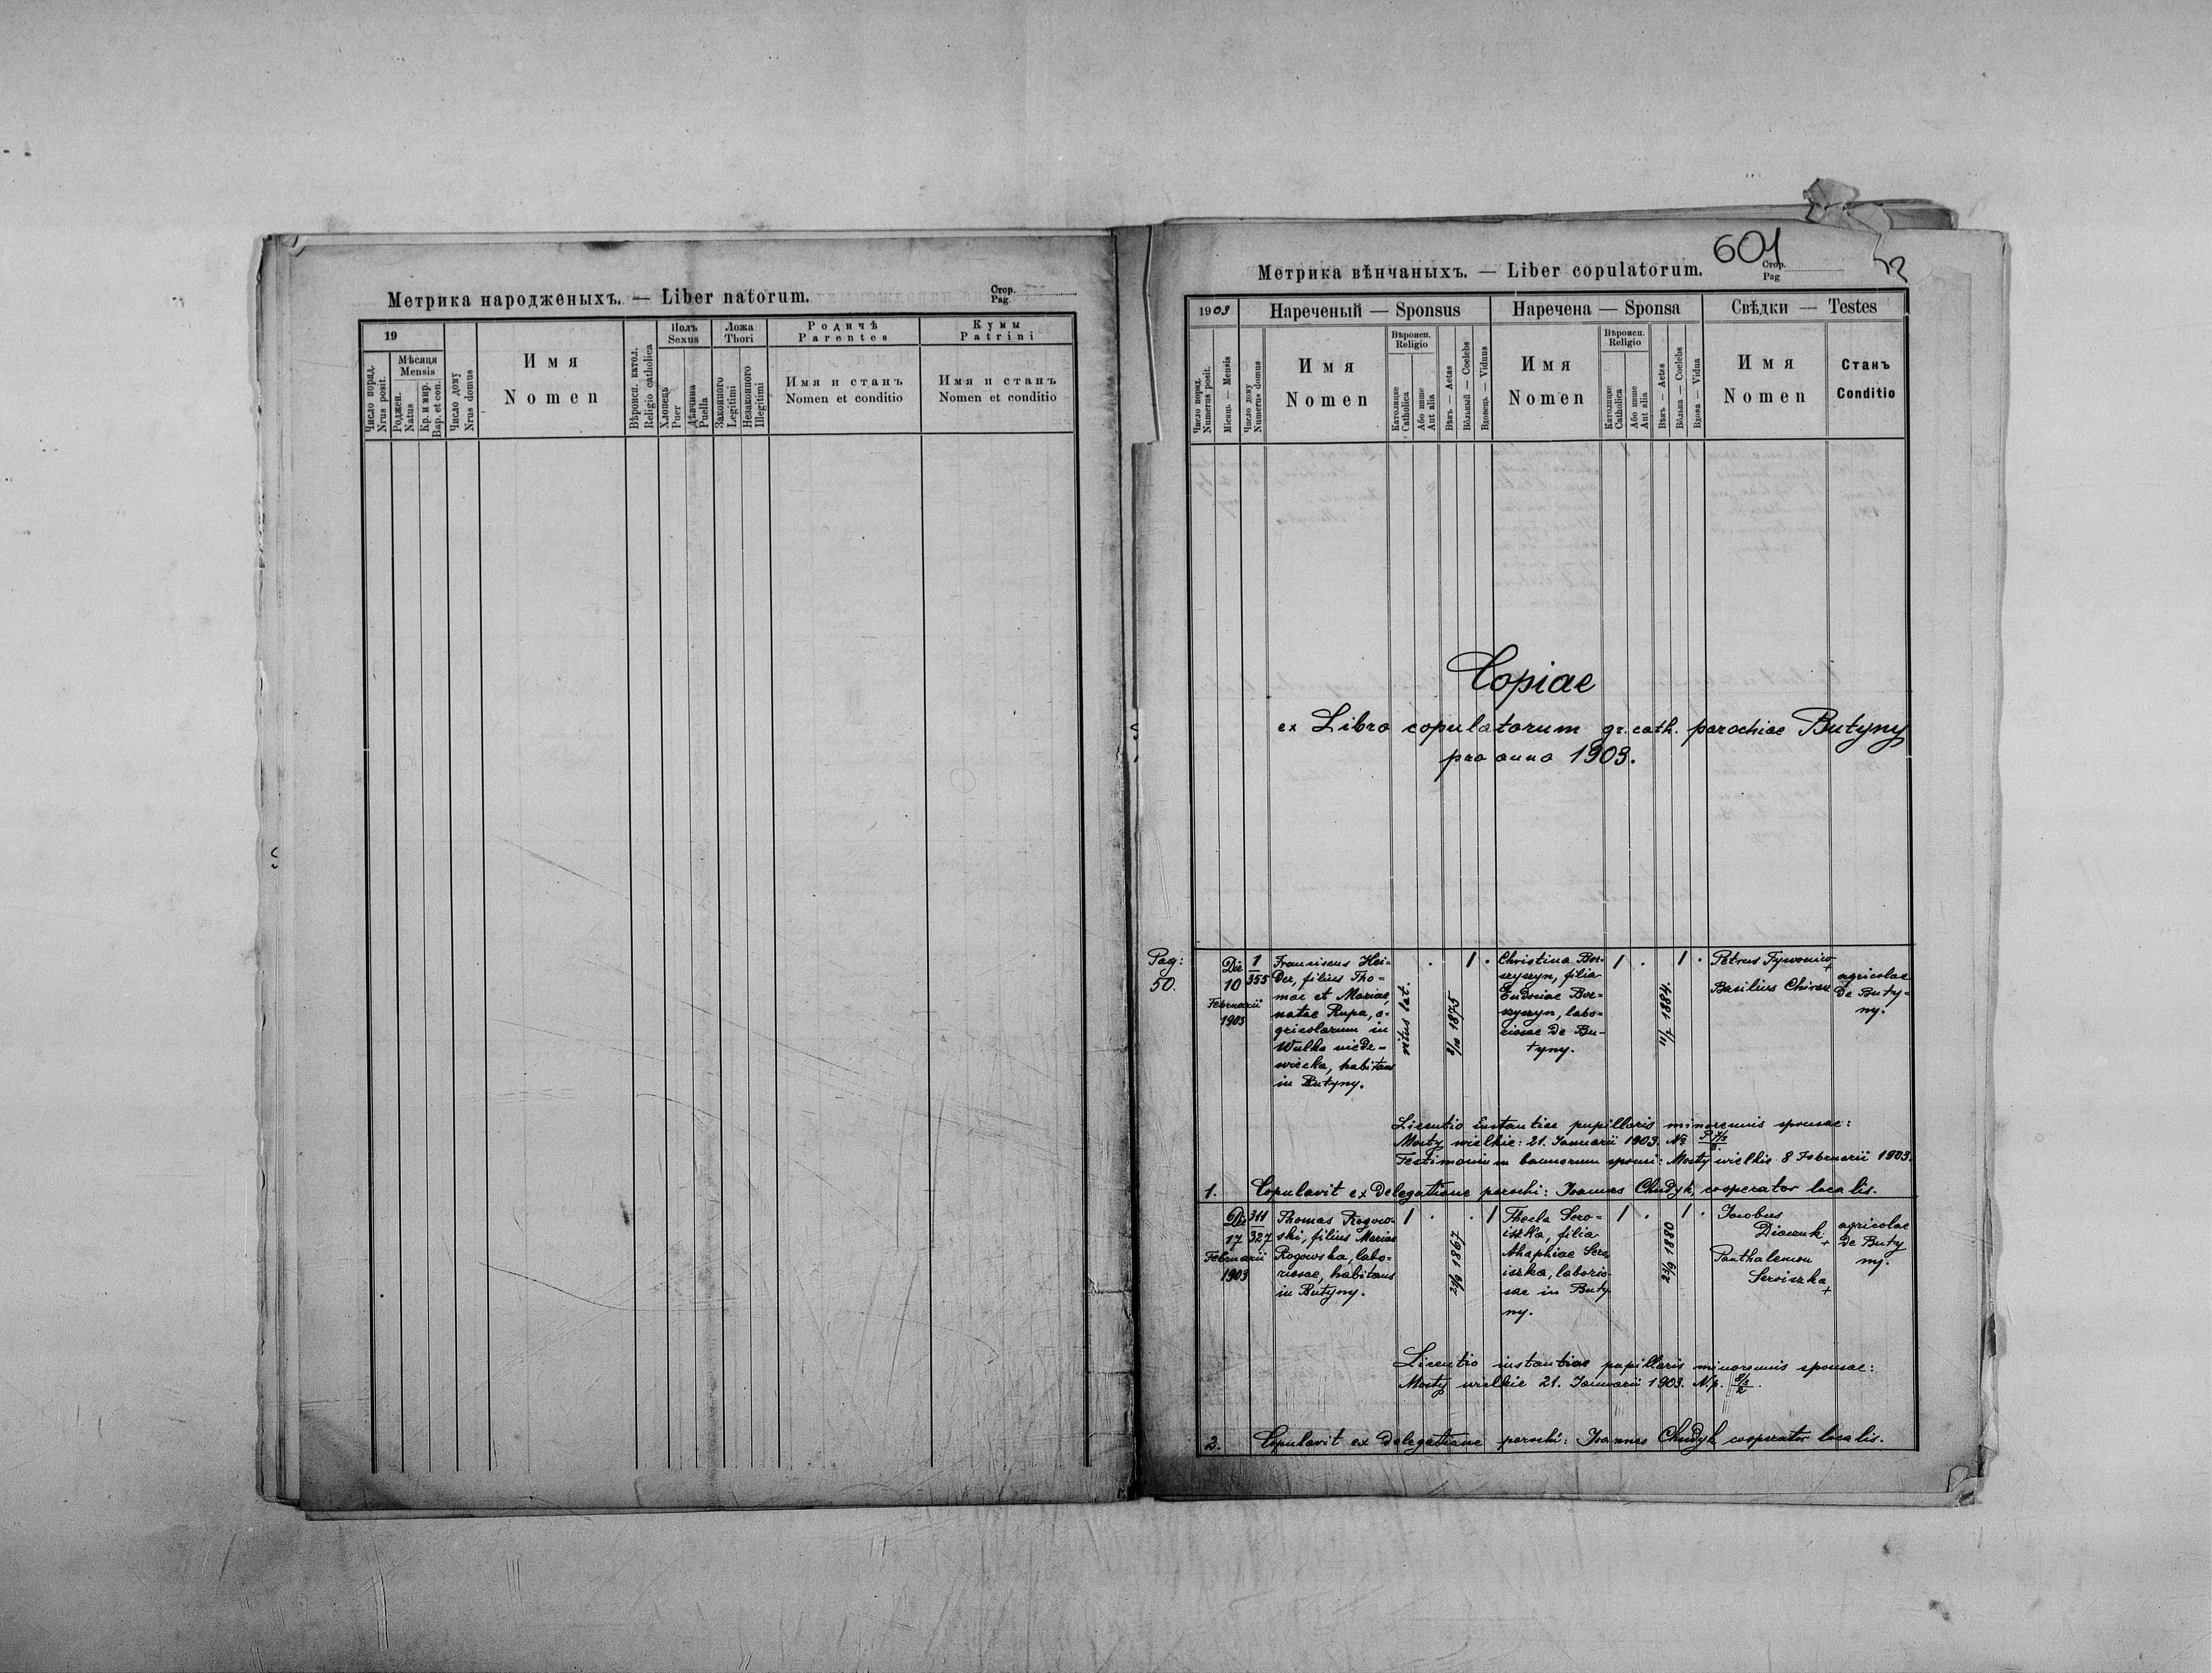 Метрика народженыхъ. — Liber natorum.
Стор.
Pag.
19
Мѣсяця
Mensis
Число поряд.
Nrus posit.
Роджен.
Natus
Кр. и мир.
Bap. et con.
Число дому
Nrus domus
Имя
Nomen
Вѣроисп. катол.
Religio catholica
Полъ
Sexus
Хлопець
Puer
Дѣвчина
Puella
Ложа
Thori
Законного
Legitimi
Незаконного
Illegitimi
Родичѣ
Parentes
Имя и станъ
Nomen et conditio
Кумы
Patrini
Имя и станъ
Nomen et conditio
601
Метрика вѣнчаныхъ. — Liber copulatorum.
Стор.
Pag
1903
Нареченый — Sponsus
Наречена — Sponsa
Свѣдки — Testes
Число поряд.
Numerus posit.
Місяць — Mensis
Число дому
Numerus domus
Имя
Nomen
Вѣроисп.
Religio
Католицке
Catholica
Або инше
Aut alia
Вѣкъ — Aetas
Вôльный — Coelebs
Вдовець — Viduus
Имя
Nomen
Вѣроисп.
Religio
Католицке
Catholica
Або инше
Aut alia
Вѣкъ — Aetas
Вôльна — Coelebs
Вдова — Vidua
Имя
Nomen
Станъ
Conditio
Copiae
ex Libro copulatorum gr. cath. parochiae Butyny
pro anno 1903.
Pag:
50.
Die
10
Februarii
1903
1
355
Franciscus Hei-
der, filius Tho-
mae et Mariae,
natae Rupa, a-
gricolarum in
Wulka
habitans
in Butyny.
ritus lat.
1875
1
Christina
filia
Eudociae
labo-
riosae de Bu-
tyny.
1
11/7 1884.
1
Petrus
Basilius
agricolae
de Buty-
ny.
Licentio Instantiae pupillaris minorennis sponsae:
Mosty wielkie: 21. Januarii 1903. №
Testimonium bannorum sponsi: Mosty wielkie 8 Februarii 1903.
1. Copulavit ex delegatione parochi: Joannes Chudyk, cooperator localis.
Die
17
Februarii
1903
311
327
Thomas Rogow-
ski, filius Mariae
Rogowska, labo-
riosae, habitans
in Butyny.
1
1867
1
Thecla Sero-
iszka, filia
Ahaphiae Sero-
iszka, laborio-
sae in Buty-
ny.
1
23/9 1880
1
Jacobus
Diaczuk +
Panthalemon
Seroiszka +
agricolae
de Buty
ny.
Licentio instantiae pupillaris minorennis sponsae:
Mosty wielkie 21. Januarii 1903. N. p.
2. Copulavit ex delegatione parochi: Joannes Chudyk cooperator localis.